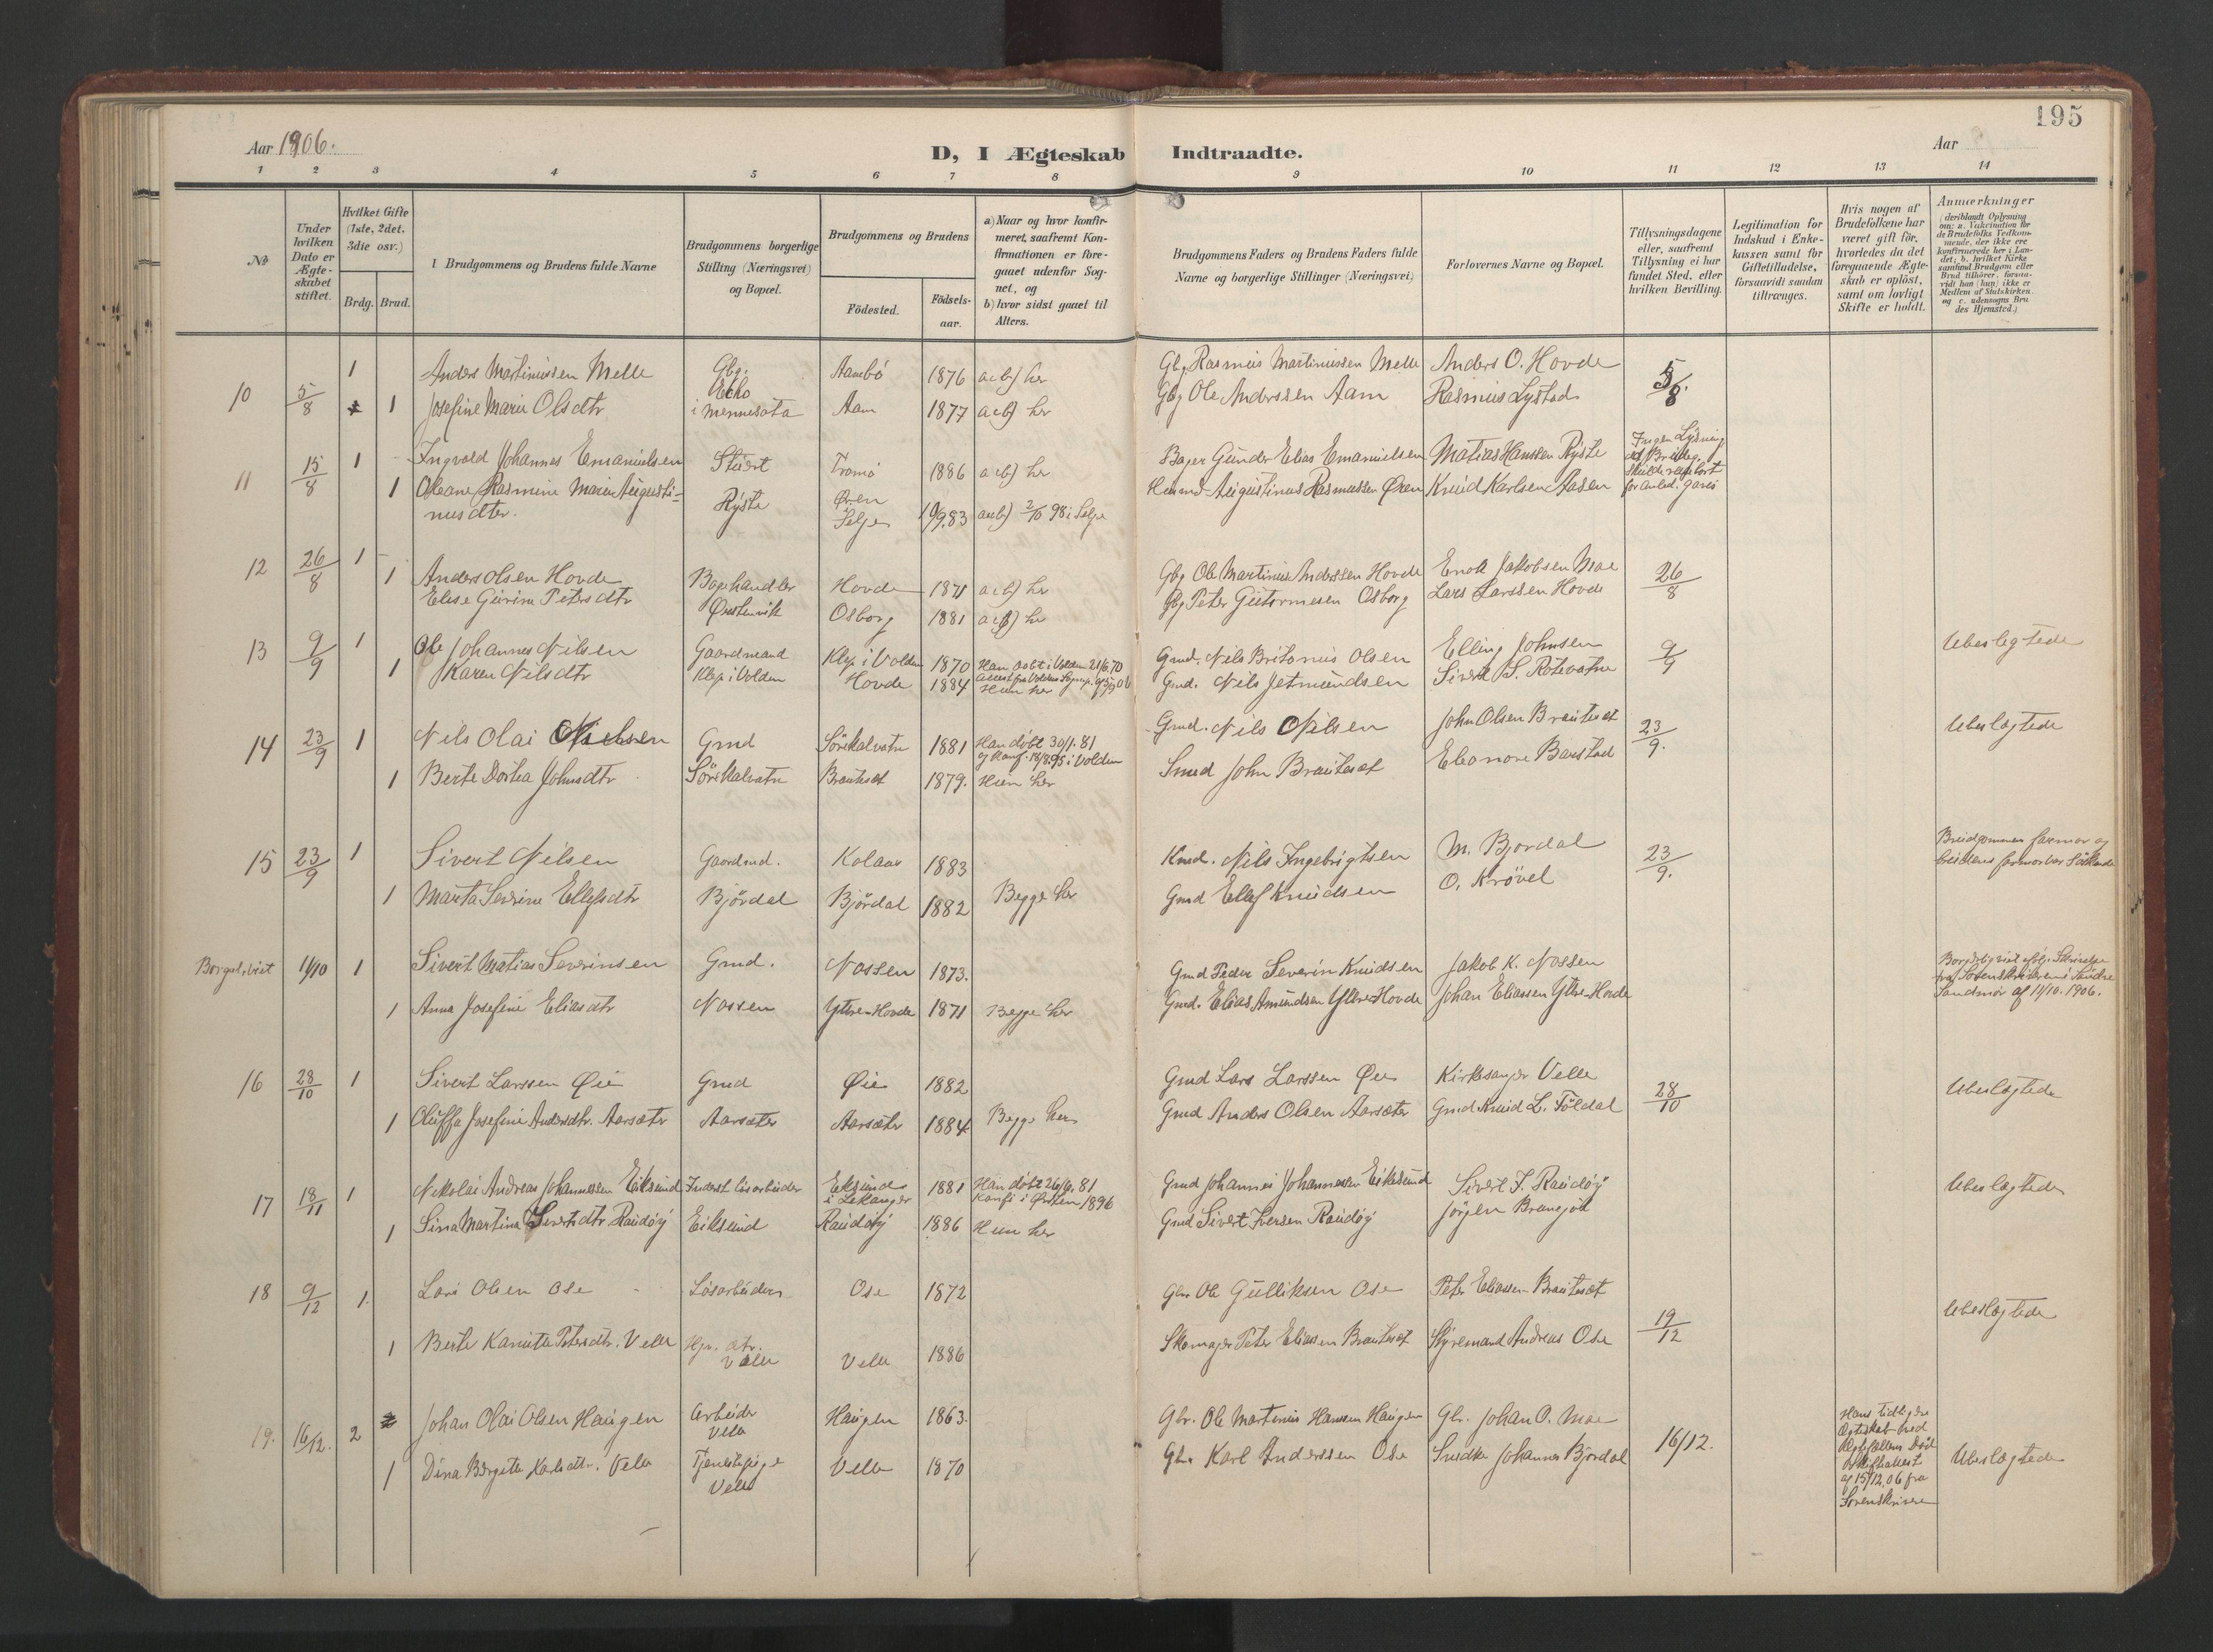 195
Aar 1906.
D, I Ægteskab Indtraadte.
Aar
1 2 3 4 5 6 7 8 9 10 11 12 13 14
No
Under hvilken Dato er Ægteskabet stiftet.
Hvilket Gifte (1ste, 2det, 3die osv.)
Brdg. Brud.
Brudgommens og Brudens fulde Navne
Brudgommens borgerlige Stilling (Næringsvei) og Bopæl.
Brudgommens og Brudens
Födested.
Födselsaar.
a) Naar og hvor konfirmeret, saafremt Konfirmationen er foregaaet udenfor Sognet, og
b) hvor sidst gaaet til Alters.
Brudgommens Faders og Brudens Faders fulde Navne og borgerlige Stillinger (Næringsvei)
Forlovernes Navne og Bopæl.
Tillysningsdagene eller, saafremt Tillysning ei har fundet Sted, efter hvilken Bevilling.
Legitimation for Indskud i Enkekassen samt for Giftetilladelse, forsaavidt saadan tiltrænges.
Hvis nogen af Brudefolkene har været gift för, hvorledes da det foregaaende Ægteskab er oplöst, samt om lovligt Skifte er holdt.
Anmærkninger
10 5/8 1 Anders Martinussen Melle Gbg. Aambö 1876 a&b) her Gbg Rasmus Martinussen Melle Anders O. Hovde 5/8.
1 Josefine Marie Olsdtr Echo i Mennesota Aam 1877 a&b) her Gbg Ole Anderssen Aam Rasmus Lystad
11 15/8 1 Ingvald Johannes Emanuelsen Stuert Tromö 1886 a&b) her Bager Gunder Elias Emanuelsen Matias Hanssen Ryste Ingen Lysning
1 Oleane Rasmine Marie Augustinusdter. Ryste Ören Selje 19/9 83 a&b) 2/10 98 i Selje Husmd Augustinus Rasmussen Ören Knud Karlsen Aasen
12 26/8 1 Anders Olsen Hovde Boghandler Hovde 1871 a&b) her Gbg Ole Martinus Anderssen Hovde Enok Jakobsen Moe 26/8
1 Elese Gurine Petersdtr Ørstenvik Osborg 1881 a&b) her Gbg Peter Guttormesen Osborg Lars Larssen Hovde
13 9/9 1 Ole Johannes Nilsen Gaardmand Klep i Volden 1870 Han döbt i Volden 21/6.70 Gmd. Nils Britanus Olsen Elling Johnsen 9/9 Ubeslegtede
1 Karen Nilsdtr Klep i Volden Hovde 1884 Hun her Gmd. Nils Jetmundsen Sivert S. Rotevatn
14 23/9 1 Nils Olai Nielsen Gmd Sörekalvatn 1881 Han döbt 30/1.81 og konf. 18/8.95 i Volden Gmd. Nils Nilsen John Olsen Brauteset 23/9. Ubeslægtede
1 Berte Dortea Johnsdtr Sörekalvatn Brauteset 1879. Hun her Smed John Brauteset Eleonore Barstad
15 23/9 1 Sivert Nilsen Gaardmd. Kolaas 1883 Kmd. Nils Ingebrigtsen M. Bjordal 23/9. Brudgommen farmor og brudens farmor var Söskende
1 Marta Severine Ellefsdtr Björdal Björdal 1882 Begge her Gmd Ellef Knudsen O. Krövel
Borgerl. viet 11/10 1 Sivert Matias Severinsen Gmd. Nossen 1873. Gmd Peder Severin Knudsen Jakob K. Nossen Borgerlig viet iflg. Skrivelse fra Sorenskriveren i Söndre Söndmör af 11/10. 1906.
1 Anna Josefine Eliasdtr Nossen Ytre-Hovde 1871 Begge her Gmd. Elias Amundsen Ytre-Hovde Johan Eliassen Ytre-Hovde
16 28/10 1 Sivert Larssen Øie Gmd Øie 1882 Gmd Lars Larssen Øie Kirkesanger Velle 28/10 Ubeslægtede
1 Oluffa Josefine Andersdtr. Aarsæter Aarsæter Aarsæter 1884 Begge her Gmd Anders Olsen Aarsæter Gmd Knud L. Földal
17 18/11 1 Nikolai Andreas Johannessen Eiksund Inderst lösarbeider Eksund i Lekanger 1881 Han döbt 26/6.81 Konf. i Ørsten 1896 Gmd Johannes Johannessen Eiksund Sivert I. Raudöy Ubeslægtede
1 Sina Martina Sivertsdtr Raudöy Eiksund Raudöy 1886 Hun her Gmd Sivert Iversen Raudöy Jörgen Brungöt
18 9/12 1. Lars Olsen Ose Lösarbeider Ose 1872 Gbr. Ole Gulliksen Ose Peter Eliassen Brauteset 19/12 Ubeslægtede
1 Berte Kanutte Petersdtr. Velle Hjv. dtr. Velle Velle 1886 Skomager Peter Eliassen Brauteset Styremand Andreas Ose
19. 16/12. 2 Johan Olai Olsen Haugen Arbeider Velle Haugen 1863. Gbr. Ole Martinus Hanssen Haugen Gbr. Johan O. Moe 16/12. Hans tidligere Ægteskab ved Ægtefællens Död Skifteattest af 15/12.06 fra Sorenskriveren
1 Dina Bergitte Karlsdtr. Velle Tjenestepige Velle Velle 1870 Gbr. Karl Anderssen Ose Snedker Johannes Björdal Ubeslægtede